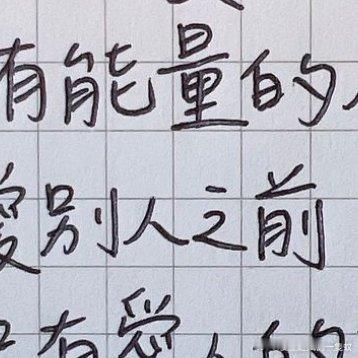 有能量的
爱别人之前
有爱人的